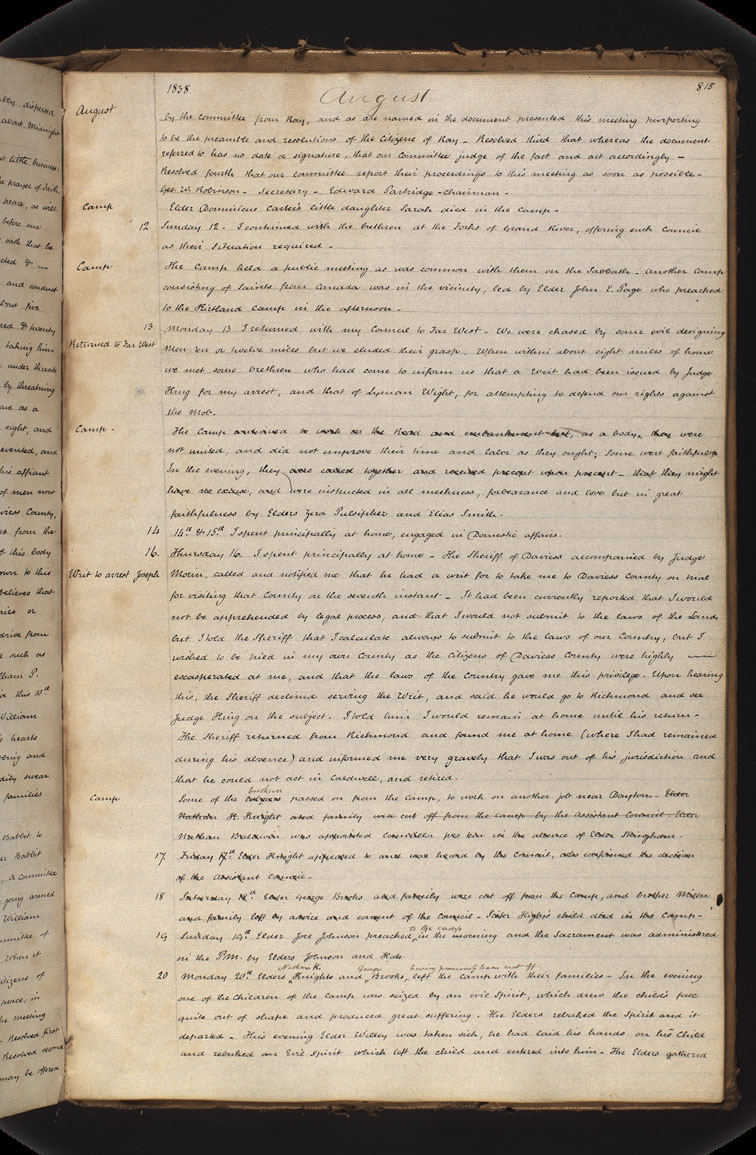 1838 August 815
August
by the committee from Ray, and as are named in the document presented this meeting purporting
to be the preamble and resolutions of the citizens of Ray - Resolved third that whereas the document
referred to has no date or signature, that our committee judge of the fact and act accordingly. -
Resolved fourth that our committee report their proceedings to this meeting as soon as possible -
Geo. W. Robinson - Secretary - Edward Partridge - Chairman -
Camp Elder Dominicus Carter's little daughter Sarah died in the camp -
12 Sunday 12. I continued with the brethren at the Forks of Grand River, offering such Council
as their situation required -
Camp The Camp held a public meeting as was common with them on the Sabbath - Another Camp
consisting of Saints from Canada was in the vicinity, led by Elder John E. Page who preached
to the Kirtland Camp in the afternoon -
13 Monday 13 I returned with my Council to Far West - We were chased by some evil designing
Returned to Far West men ten or twelve miles but we eluded their grasp. When within about eight miles of home
we met some brethren who had come to inform us that a Writ had been issued by Judge
King for my arrest, and that of Lyman Wight, for attempting to defend our rights against
the Mob.
Camp. The Camp continued to work on the Road and embankment but, as a body, they were
not united, and did not improve their time and labor as they ought; Some were faithful
In the evening, they were called together and received precept upon precept - that they might
have no excuse, and were instructed in all meekness, forbearance and love but in great
faithfulness by Elders Zera Pulsipher and Elias Smith -
14 14th & 15th I spent principally at home, engaged in Domestic affairs.
16. Thursday 16 I spent principally at home - The Sheriff of Daviess accompanied by Judge
Writ to arrest Joseph Morin, called and notified me that he had a writ for to take me to Daviess County on trial
for visiting that County on the seventh instant - It had been currently reported that I would
not be apprehended by legal process, and that I would not submit to the laws of the Land
but I told the Sheriff that I calculate always to submit to the laws of our Country, but I
wished to be tried in my own County as the citizens of Daviess County were highly
exasperated at me, and that the laws of the Country gave me this privilege - Upon hearing
this, the Sheriff declined serving the Writ, and said he would go to Richmond and see
Judge King on the subject. I told him I would remain at home until his return -
The Sheriff returned from Richmond and found me at home (where I had remained
during his absence) and informed me very gravely that I was out of his jurisdiction and
that he could not act in Caldwell, and retired.
brethren
Camp Some of the passed on from the camp, to work on another job near Dayton - Elder
Nathan K. Knight and family were cut off from the camp by the Assistant Council - Elder
Nathan Baldwin was appointed Councillor pro tem in the absence of Elder
17 Friday 17th Elder Knight appealed to and was heard by the Council, who confirmed the decision
of the Assistant Council -
18 Saturday 18th Elder George Brooks and family were cut off from the Camp, and brother
and family left by advice and consent of the Council - Sister Higby's child died in the camp -
to the camp
19 Sunday 19th Elder Joel Johnson preached in the morning and the Sacrament was administered
in the P.M. by Elders Johnson and Hale
Nathan K. George having previously been cut off
20 Monday 20th Elders Knights and Brooks left the camp with their families - In the evening
one of the children of the camp was seized by an evil spirit, which drew the child's face
quite out of shape and produced great suffering. The Elders rebuked the Spirit and it
departed - This evening Elder Willey was taken sick, he had laid his hands on his child
and rebuked an Evil Spirit which left the child and entered into him - The Elders gathered